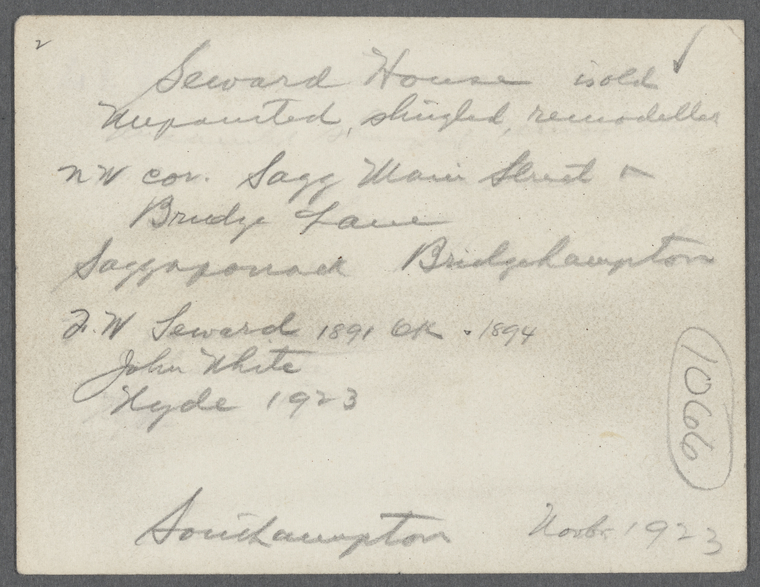 2
Seward House is old
Unpainted, shingled, remodelled
NW cor. Sagg Main Street &
Bridge Lane
Saggaponack Bridgehampton
F.W Seward 1891 OK . 1894
John White
Hyde 1923
1066
Southampton 1923